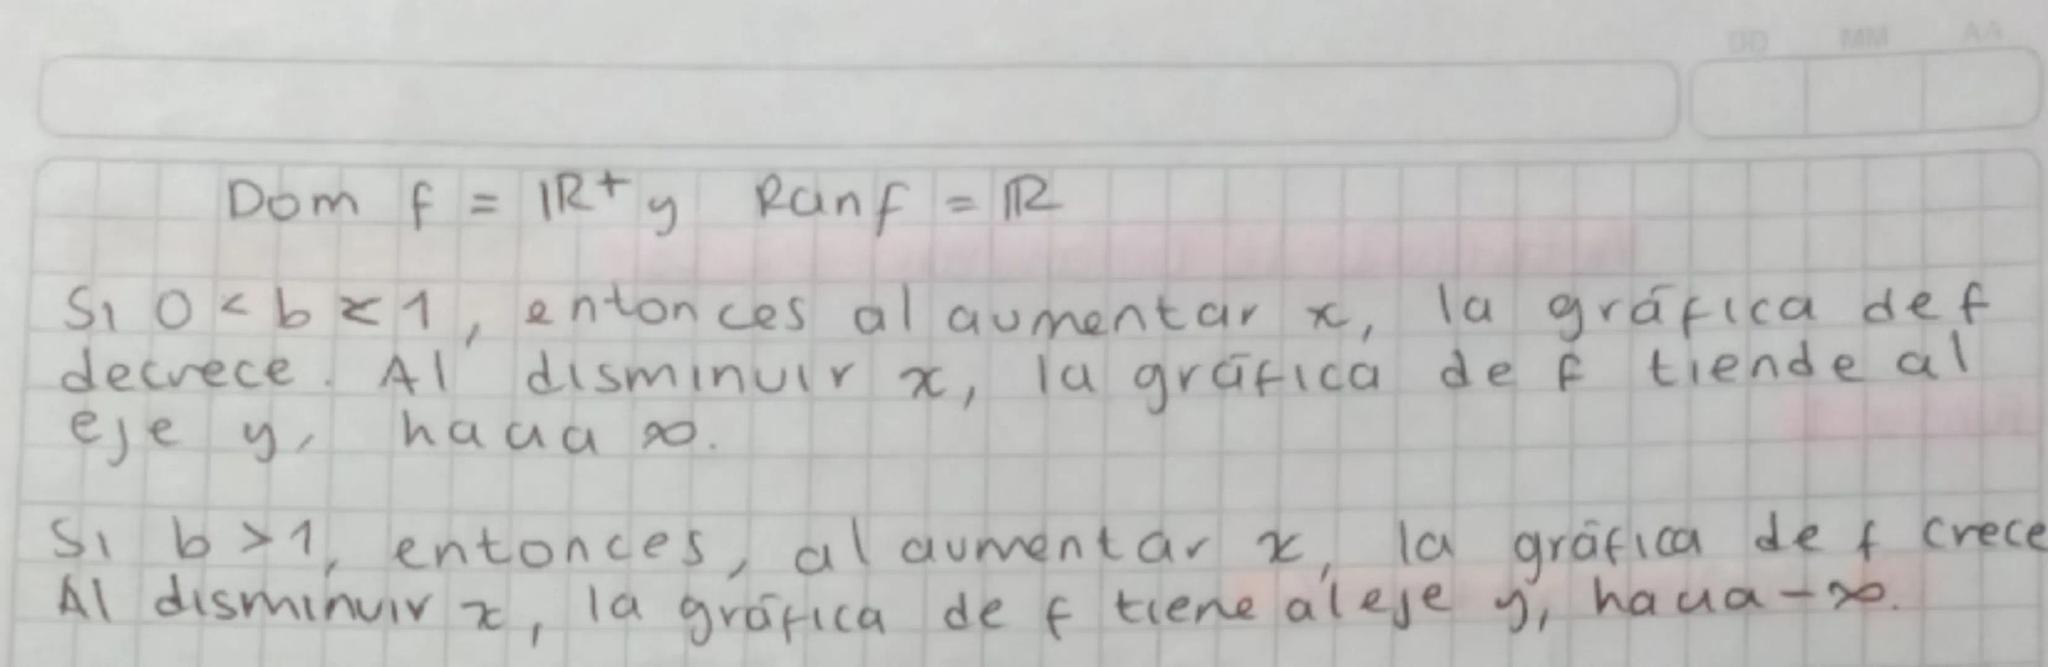 DD MM AA
Dom f = ℝ+ y Ran f = ℝ
Si 0 < b < 1, entonces al aumentar x, la gráfica de f
decrece. Al disminuir x, la gráfica de f tiende al
eje y, hacia ∞.
Si b > 1, entonces, al aumentar x, la gráfica de f crece
Al disminuir x, la gráfica de f tiene al eje y, hacia -∞.